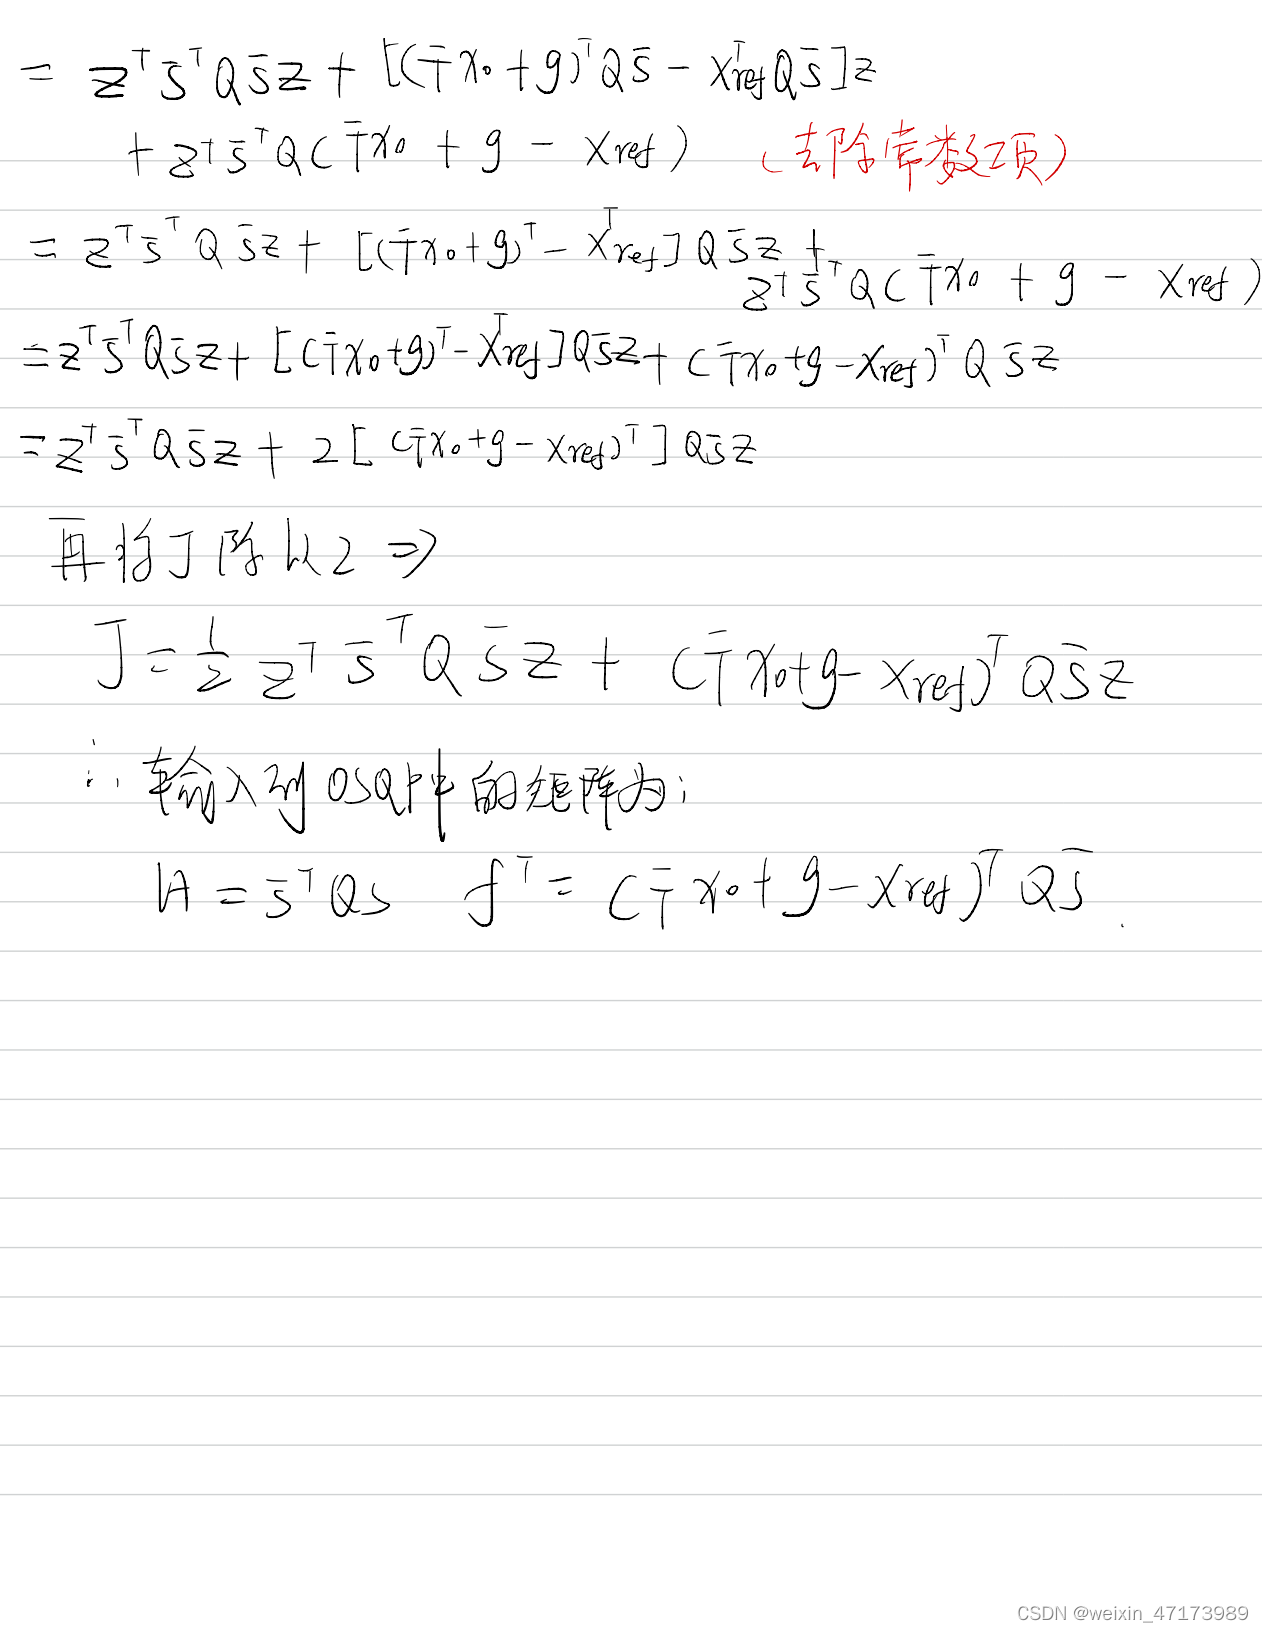 = zᵀS̄ᵀQS̄z + [(T̄x₀+g)ᵀQS̄ − XᵀrefQS̄]z
+ zᵀS̄ᵀQ(T̄x₀ + g − Xref) (去除常数项)
= zᵀS̄ᵀQS̄z + [(T̄x₀+g)ᵀ − Xᵀref]QS̄z +
zᵀS̄ᵀQ(T̄x₀ + g − Xref)
= zᵀS̄ᵀQS̄z + [(T̄x₀+g)ᵀ − Xᵀref]QS̄z + (T̄x₀+g−Xref)ᵀQS̄z
= zᵀS̄ᵀQS̄z + 2[(T̄x₀+g−Xref)ᵀ]QS̄z
再将J除以2 ⇒
J = ½ zᵀS̄ᵀQS̄z + (T̄x₀+g−Xref)ᵀQS̄z
∴ 输入到OSQP中的矩阵为:
H = S̄ᵀQS fᵀ = (T̄x₀+g−Xref)ᵀQS̄.
CSDN @weixin_47173989